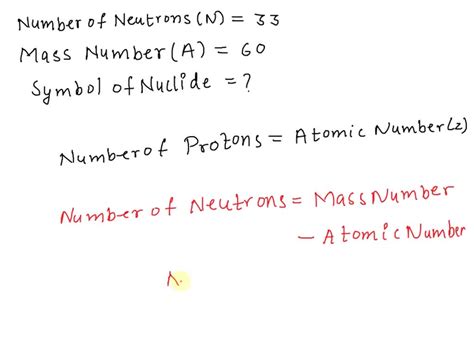 Number of Neutrons (N) = 33
Mass Number (A) = 60
Symbol of Nuclide = ?
Number of Protons = Atomic Number (z)
Number of Neutrons = Mass Number
- Atomic Number